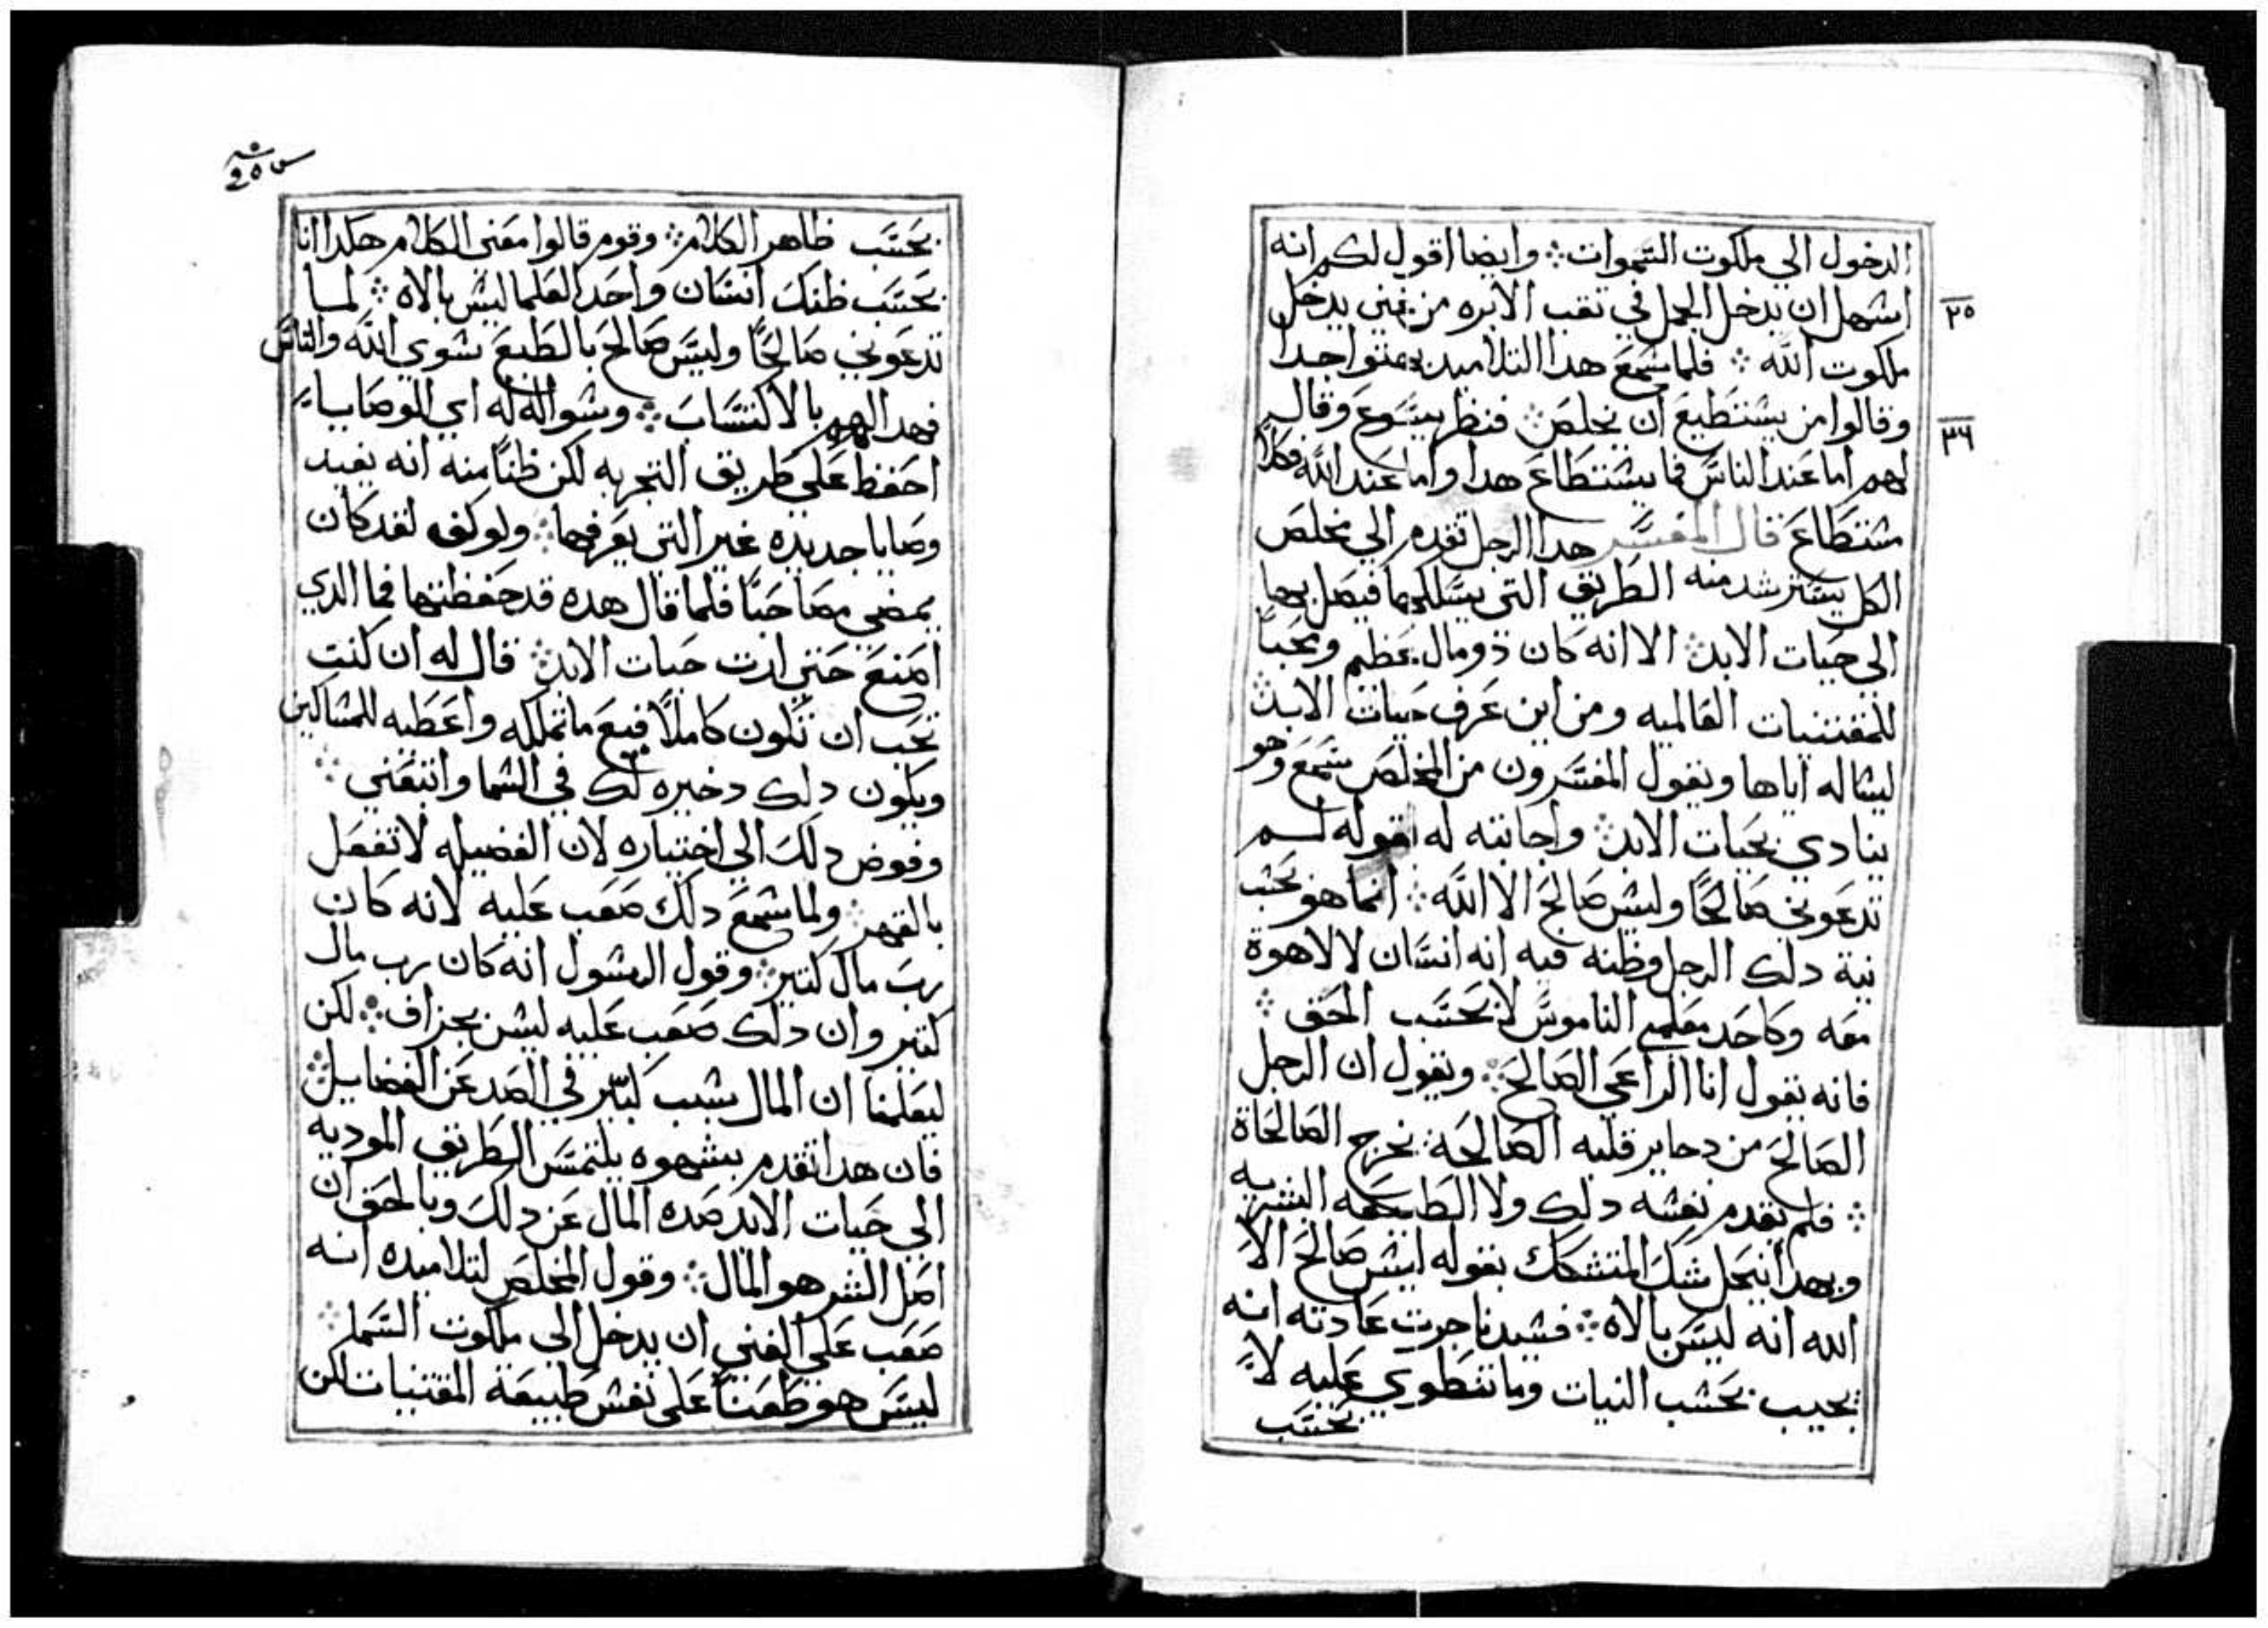 الدخول الي ملكوت السموات ❖ وايضا اقول لكم انه
٢٥
اسهل ان يدخل الجمل في تقب الابره من غني يدخل
ملكوت الله ❖ فلما سمع هدا التلاميد بهتوا جدا
وقالوا من يستطيع ان يخلص ❖ فنظر يسوع وقال
٣٦
لهم اما عند الناس فما يستطاع هدا واما عند الله فكلا
مستطاع قال المفسر هدا الرجل تقدم الي مخلص
الكل يسترشد منه الطريق التي يسلكها فيصل بها
الي حيات الابد ❖ الا انه كان ذو مال عظيم ومحبا
للمقتنيات العالميه ومن اين عرف حيات الابد ❖
ليساله اياها ويقول المفسرون من المخلص سمع وهو
ينادي بحيات الابد ❖ واجابته له بقوله لم
تدعوني صالحًا وليس صالح الا الله ❖ انما هو بحسب
نية دلك الرجل وظنه فيه انه انسان لا لاهوة
معه وكاحد معلمي الناموس لا بحسب الحق ❖
فانه يقول انا الراعي الصالح ❖ ويقول ان الرجل
الصالح من دخاير قلبه الصالحة يخرج الصالحاة
❖ فلم يقدم نفسه دلك ولا الطبيعه البشريه
وبهدا ينحل شك المتشكك بقوله ليس صالح الا
الله انه ليس بالاه ❖ فسيدنا جرت عادته انه
يجيب بحسب النيات وما تنطوي عليه لا
بحسب
بحسب ظاهر الكلام ❖ وقوم قالوا معني الكلام هكدا انا
بحسب ظنك انسان واحد العلما ليس بالاه ❖ لما
تدعوني صالحًا وليس صالح بالطبع سوي الله والناس
فهدا لهم بالاكتساب ❖ وسواله له اي الوصايا
احفظ علي طريق التجربه لكن ظنًا منه انه يفيد
وصايا جديده غير التي يعرفها ❖ ولو لقد كان
يمضي مصاحبًا فلما قال هده قد حفظتها فما الدي
اصنع حتي ارت حيات الابد ❖ قال له ان كنت
تحب ان تكون كاملًا فبع ما تملكه واعطيه للمساكين
ويكون دلك دخيره لك في السما واتبعني ❖
وفوض دلك الي اختياره لان الفضيله لا تفعل
بالقهر ❖ ولما سمع دلك صعب عليه لانه كان
رب مال كتير ❖ وقول الرسول انه كان رب مال
كتير وان دلك صعب عليه ليس بجزاف ❖ لكن
ليعلمنا ان المال سبب كبير في الصد عن الفضايل ❖
فان هدا تقدم بشهوه يلتمس الطريق الموديه
الي حيات الابد صده المال عن دلك وبالحق ان
اصل الشر هو المال ❖ وقول المخلص لتلاميده انه
صعب علي الغني ان يدخل الي ملكوت السما ❖
ليس هو طعنًا علي نفس طبيعة المقتنيات لكن